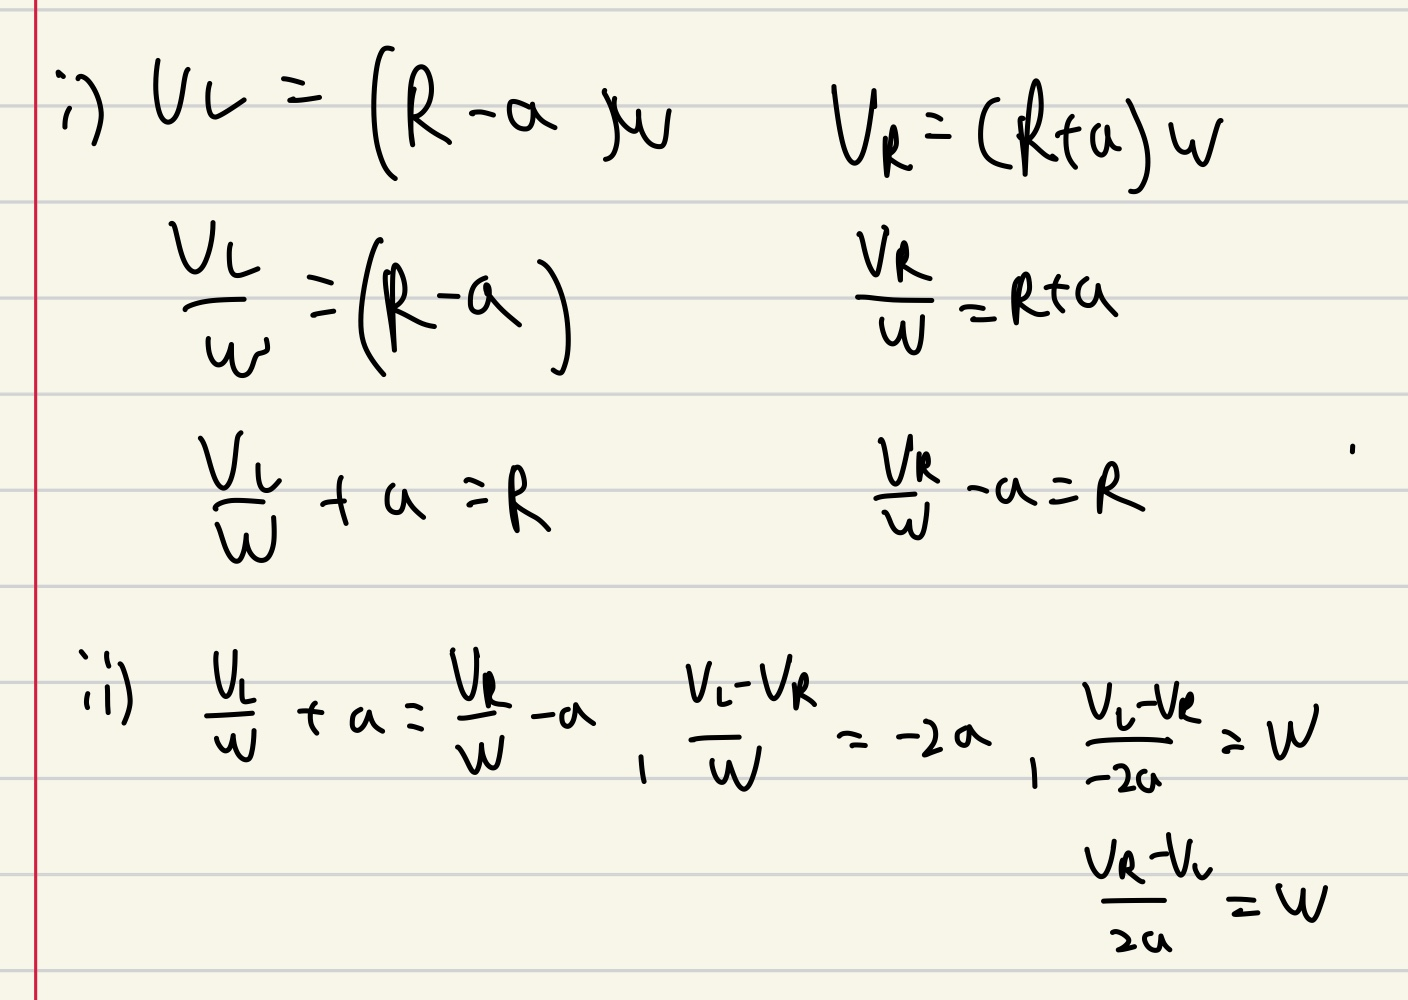 i) VL = (R - a)w    VR = (R+a)w
VL/w = (R - a)    VR/w = R+a
VL/w + a = R    VR/w - a = R
ii) VL/w + a = VR/w - a, (VL - VR)/w = -2a, (VL - VR)/-2a = w
(VR - VL)/2a = w